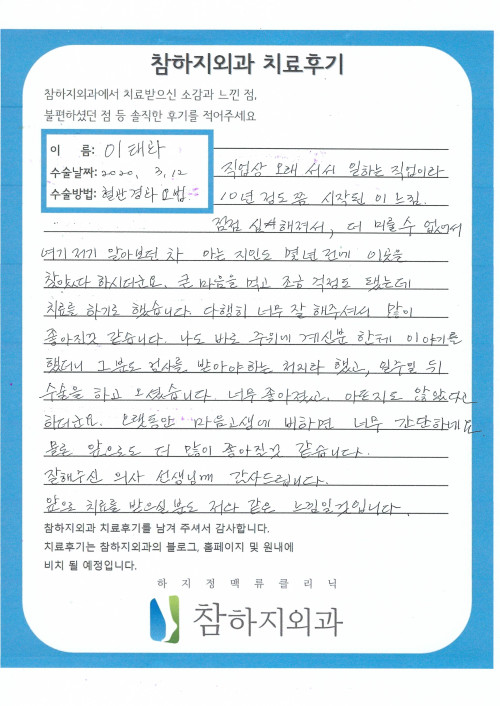 참하지외과 치료후기
참하지외과에서 치료받으신 소감과 느낀 점,
불편하셨던 점 등 솔직한 후기를 적어주세요
이 름: 이태라
수술날짜: 2020, 3, 12
수술방법: 혈관경화요법
직업상 오래 서서 일하는 직업이라
10년 정도쯤 시작된 이 느낌.
점점 심해져서, 더 미룰수 없어서
여기저기 알아보던 차 아는 지인도 몇년전에 이곳을
찾았다 하시더군요. 큰 마음을 먹고 조금 걱정도 됐는데
치료를 하기로 했습니다. 다행히 너무 잘 해주셔서 많이
좋아진것 같습니다. 나도 바로 주위에 계신분 한테 이야기를
했더니 그분도 검사를 받아야 하는 처지라 했고, 일주일 뒤
수술을 하고 오셨습니다. 너무 좋아졌고, 아프지도 않았다고
하더군요. 오랫동안 마음고생에 비하면 너무 간단하네요
물론 앞으로도 더 많이 좋아질것 같습니다.
잘해주신 의사 선생님께 감사드립니다.
앞으로 치료를 받으실분도 저와 같은 느낌일것입니다.
참하지외과 치료후기를 남겨 주셔서 감사합니다.
치료후기는 참하지외과의 블로그, 홈페이지 및 원내에
비치 될 예정입니다.
하지정맥류클리닉
참하지외과